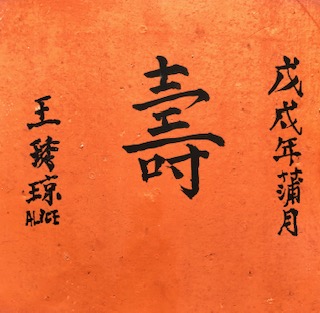 戊戌年蒲月
壽
王琼
ALICE